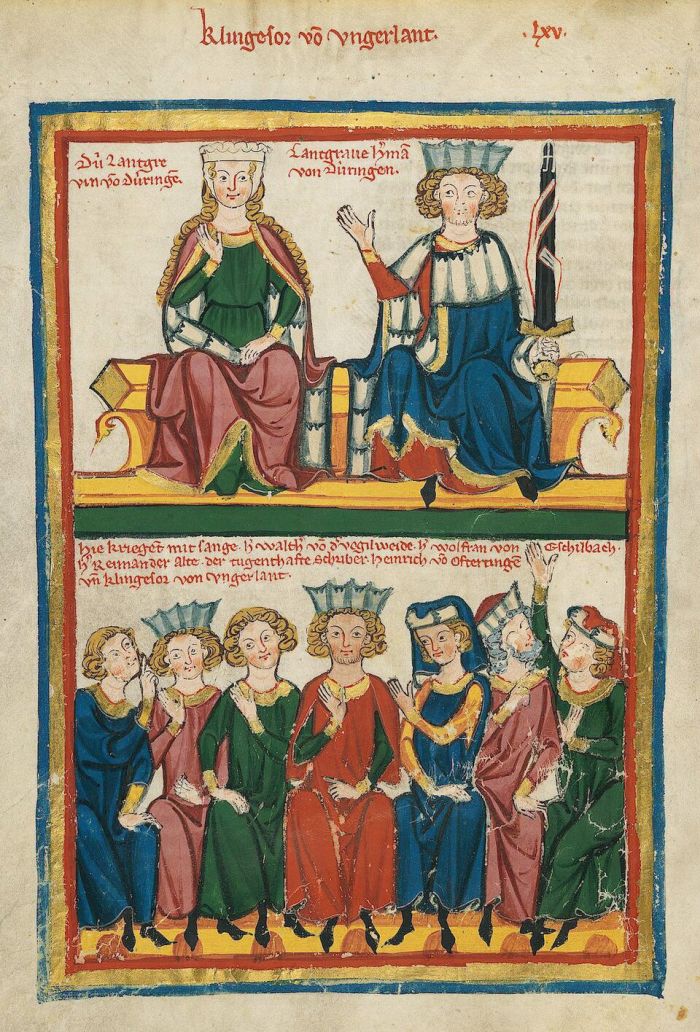 Klingesor võ vngerlant.
.lxv.
Dü Lantgre
vin võ Düringẽ.
Lantgraue h'mã
von Düringen.
Hie krieget mit sange. h' walth' võ d' vogilweide. h' wolfran von Eschilbach.
h' Reinander Alte. der tugenthafte Schriber. Heinrich võ Ofteringẽ
vñ Klingesor von vngerlant.